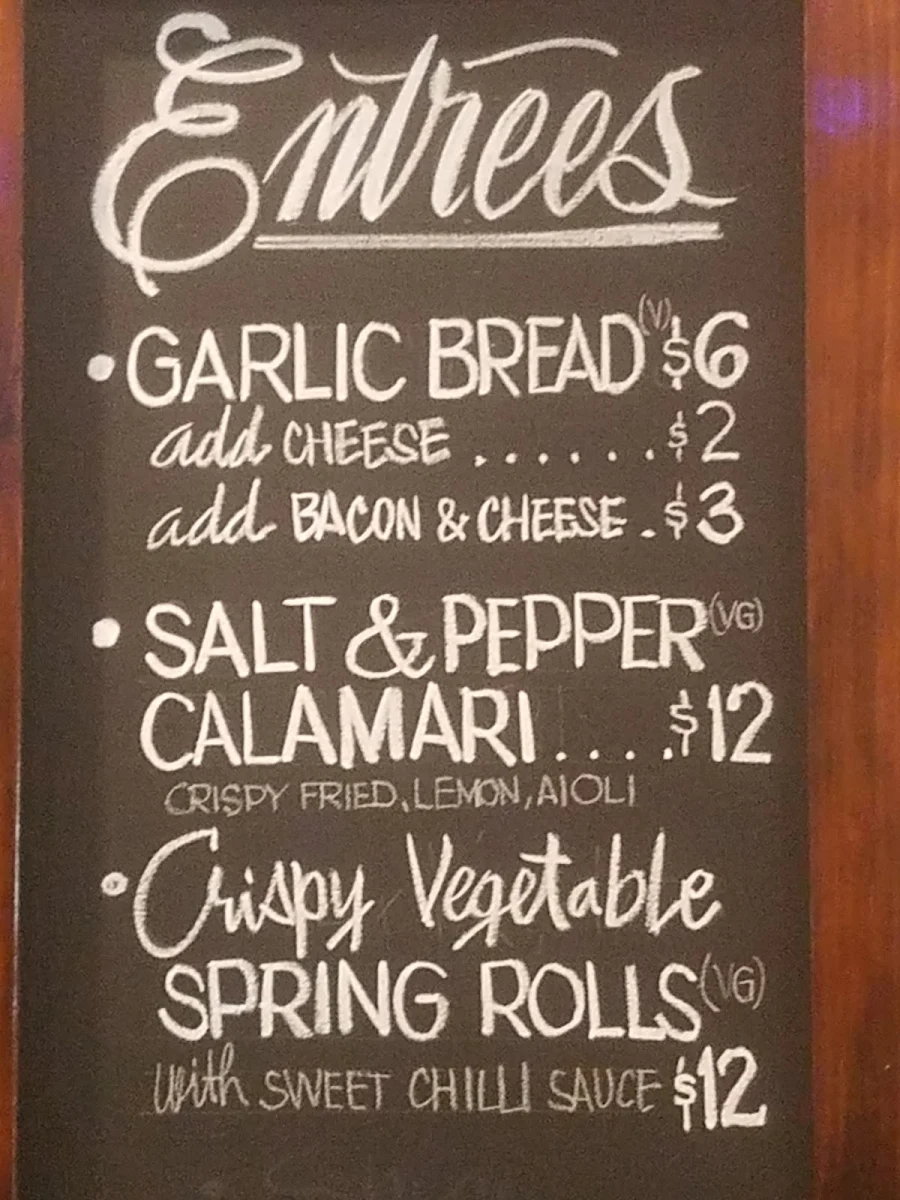 Entrees
• GARLIC BREAD (V) $6
add CHEESE ....... $2
add BACON & CHEESE . $3
• SALT & PEPPER (VG)
CALAMARI ..... $12
CRISPY FRIED, LEMON, AIOLI
• Crispy Vegetable
SPRING ROLLS (VG)
with SWEET CHILLI SAUCE $12